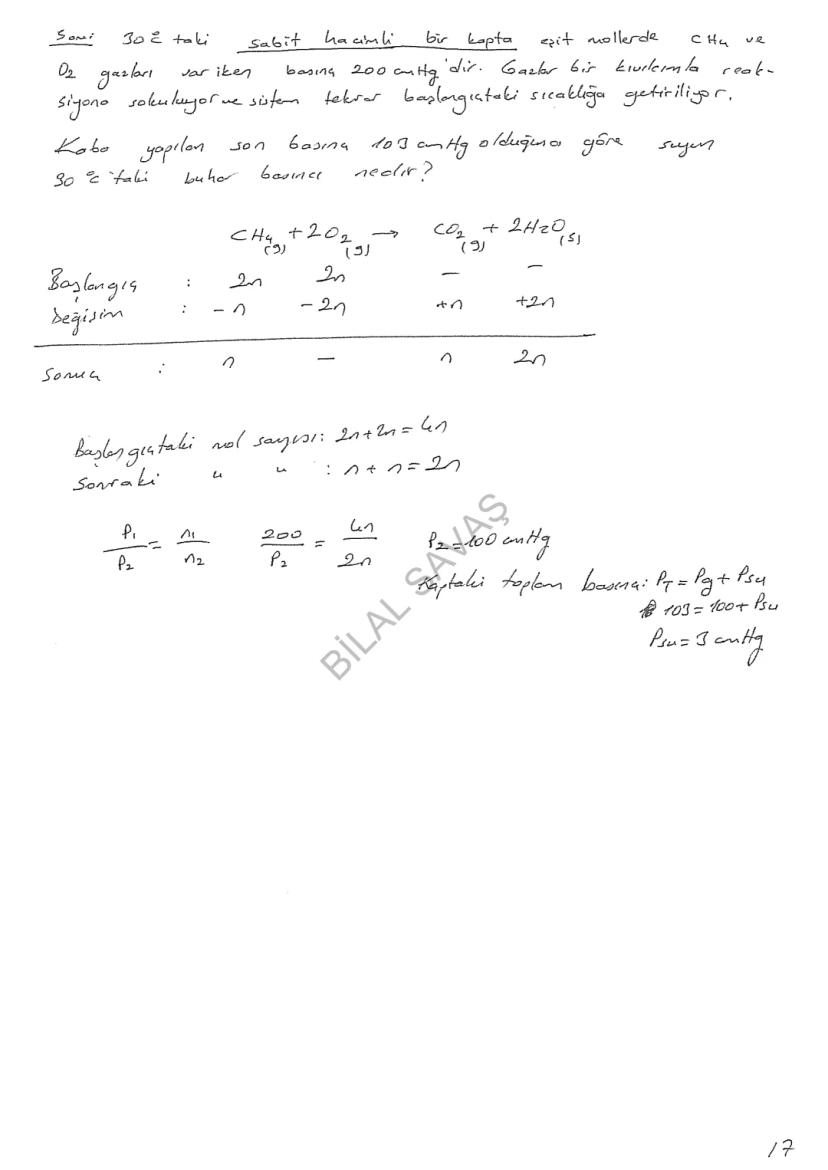 Soru: 30°C taki sabit hacimli bir kapta eşit mollerde CH4 ve
O2 gazları var iken basınç 200 cmHg'dir. Gazlar bir kıvılcımla reak-
siyona sokuluyor ve sistem tekrar başlangıçtaki sıcaklığa getiriliyor.
Kaba yapılan son basınç 103 cmHg olduğuna göre suyun
30°C taki buhar basıncı nedir?
CH4(g) + 2O2(g) → CO2(g) + 2H2O(s)
Başlangıç : 2n 2n – –
Değişim : -n -2n +n +2n
Sonuç : n – n 2n
Başlangıçtaki mol sayısı: 2n+2n=4n
Sonraki " " : n+n=2n
P1/P2 = n1/n2 200/P2 = 4n/2n P2=100 cmHg
Kaptaki toplam basınç: PT = Pg + Psu
103=100+Psu
Psu=3 cmHg
BİLAL SAVAŞ
17